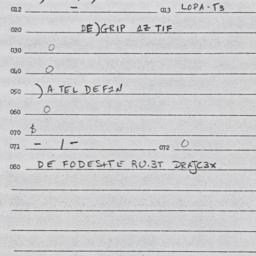 012 - 013 LOPA-T3
020 DE)GRIP 1Z TIF
030 0
040 0
050 )A TEL DEF1N
060 0
070 $
071 - 1 - 072 0
080 DE FODES+TE RU.3T DRAJC3X